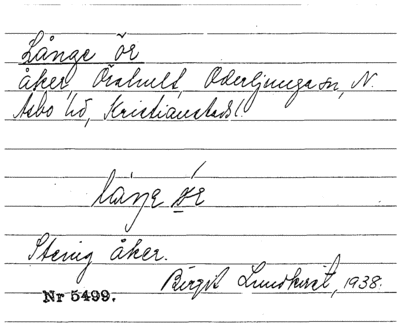 Långe ör
åker, Örahult, Oderljunga sn, N.
Åsbo hd, Kristianstads l.
Stenig åker.
Birgit Lundkvist, 1938.
Nr 5499.